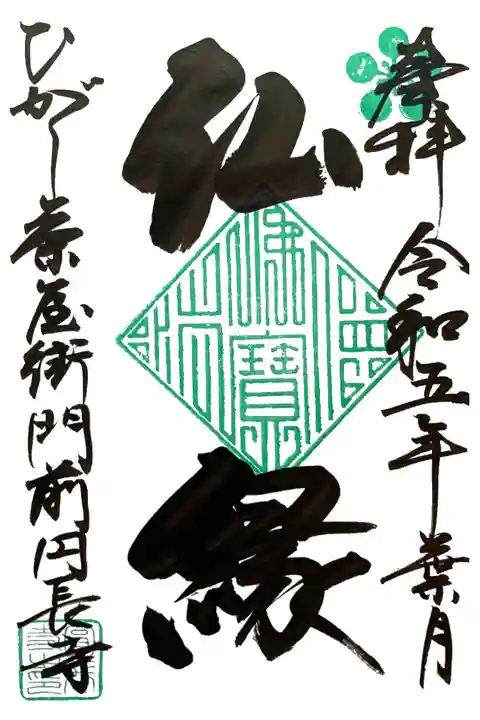 奉拝 令和五年葉月
仏縁
ひがし茶屋街門前円長寺